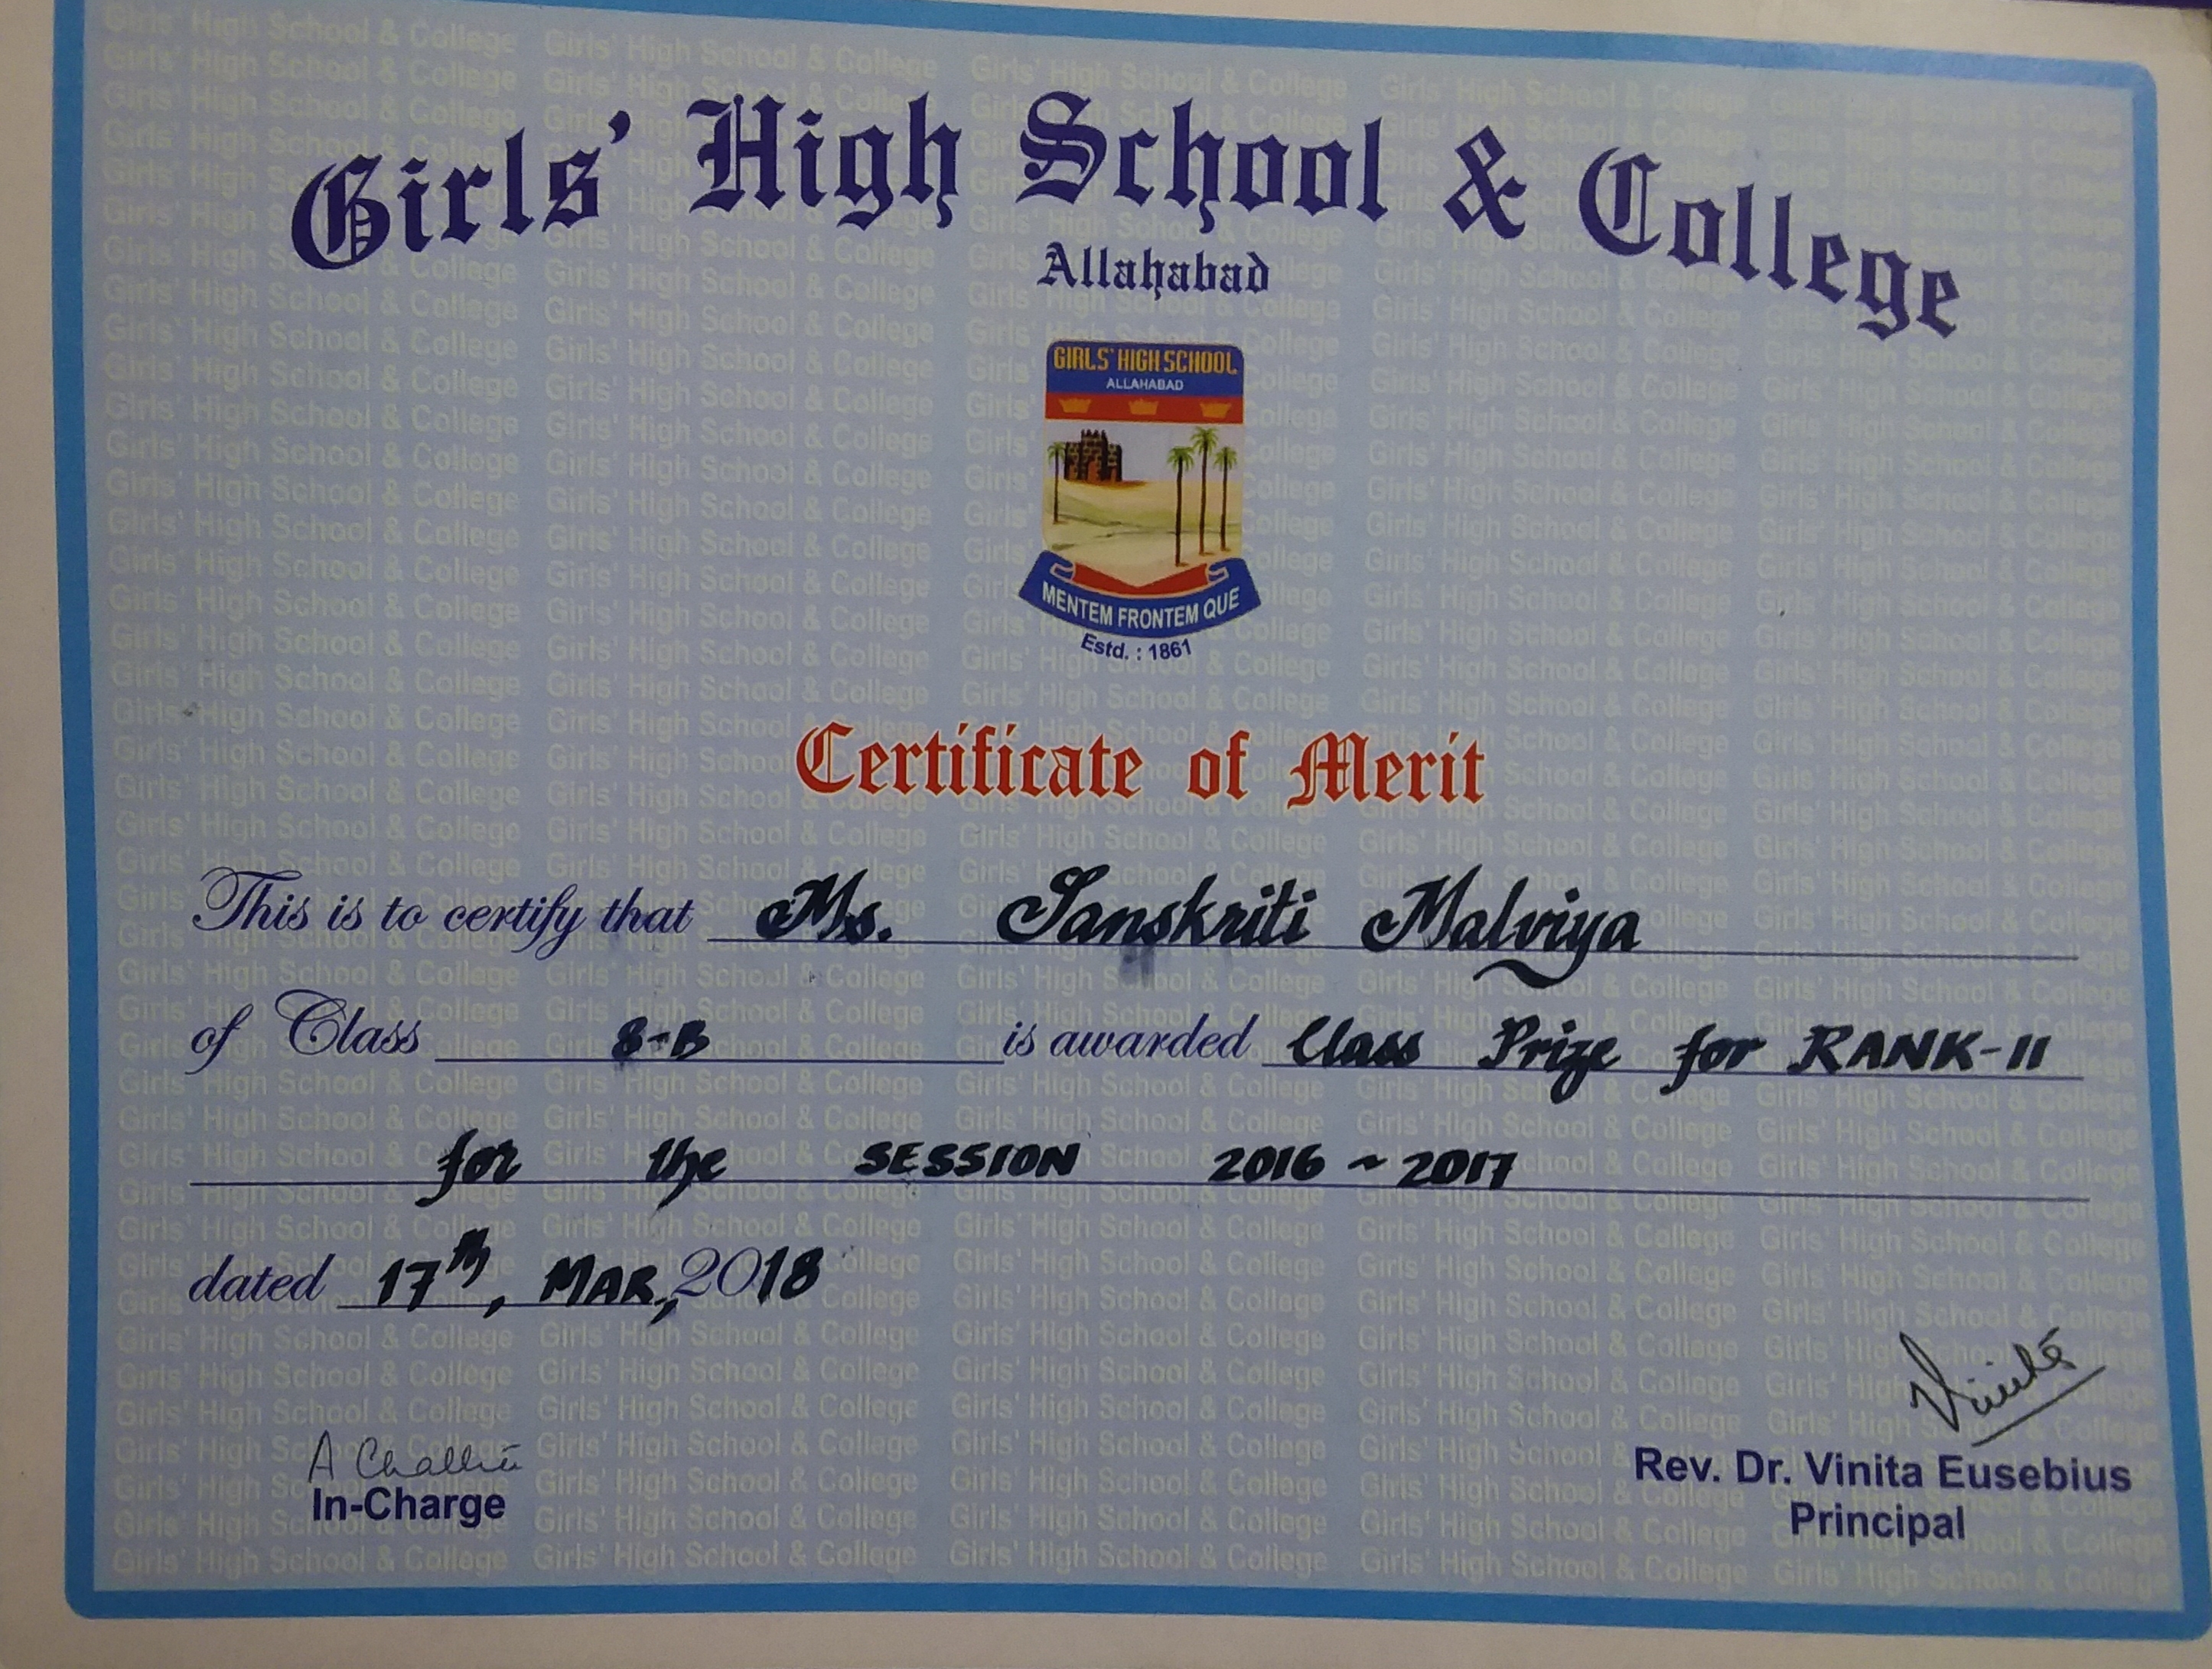 Girls' High School & College
Allahabad
GIRLS' HIGH SCHOOL
ALLAHABAD
MENTEM FRONTEM QUE
Estd. : 1861
Certificate of Merit
This is to certify that Ms. Sanskriti Malviya
of Class 8-B is awarded Class Prize for RANK-II
for the SESSION 2016 ~ 2017
dated 17th, MAR, 2018
Vinita
A
In-Charge
Rev. Dr. Vinita Eusebius
Principal